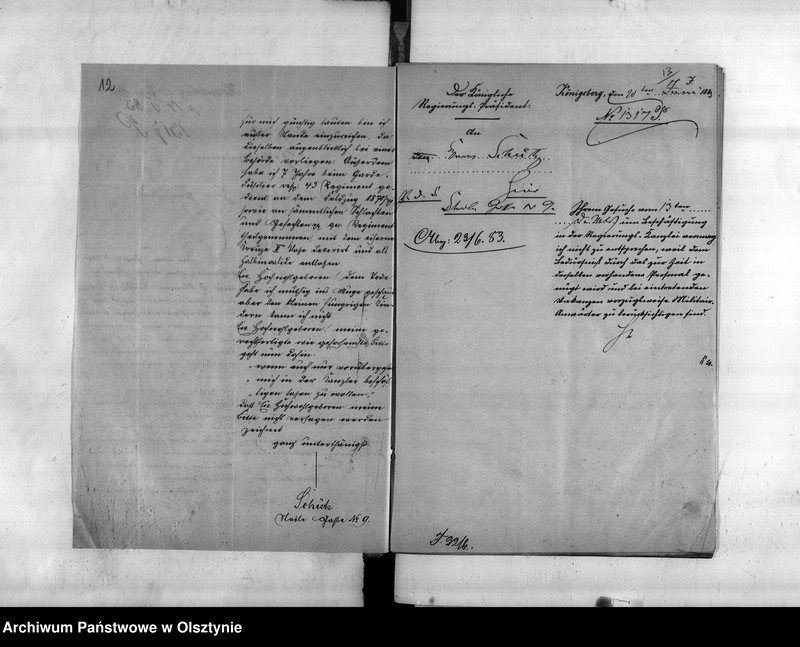 12
für mich günstig lauten bin ich
außer Stande einzureichen, da
dieselben augenblicklich bei einer
Behörde vorliegen. Außerdem
habe ich 7 Jahre beim Garde-
Füsilier resp. 43 Regiment ge-
dient an dem Feldzug 1870/71
sowie an sämmtlichen Schlachten
und Gefechten pp. Regiment
theilgenommen, mit dem eisernen
Kreuze II Classe dekorirt und als
Halbinvalide entlassen
Ew. Hochwohlgeboren! dem Tode
habe ich muthig ins Auge geschaut
aber den kleinen hungrigen Kin-
dern kann ich nicht.
Ew Hochwohlgeboren! meine ge-
rechtfertigte wie gehorsamste Bitte
geht nun dahin:
wenn auch nur vorübergehend
mich in der Kanzlei beschäf-
tigen lassen zu wollen,
daß Ew Hochwohlgeboren meine
Bitte nicht versagen werden
zeichnet
ganz unterthänigst
Schütz
Gasse No 9.
Der Königliche
Regierungs-Präsident.
An
Herrn Schütz
hier
Gasse No 9.
23/6. 83.
13
Königsberg, den 20ten Juni 1883
No 1317 P
Ihrem Gesuche vom 13ten
d. Mts. um Beschäftigung
in der Regierungs-Kanzlei vermag
ich nicht zu entsprechen, weil dem
Bedürfniß durch das zur Zeit in
derselben vorhandene Personal ge-
nügt wird und bei eintretenden
Vakanzen vorzugsweise Militair-
Anwärter zu berücksichtigen sind.
22/6.
Archiwum Państwowe w Olsztynie